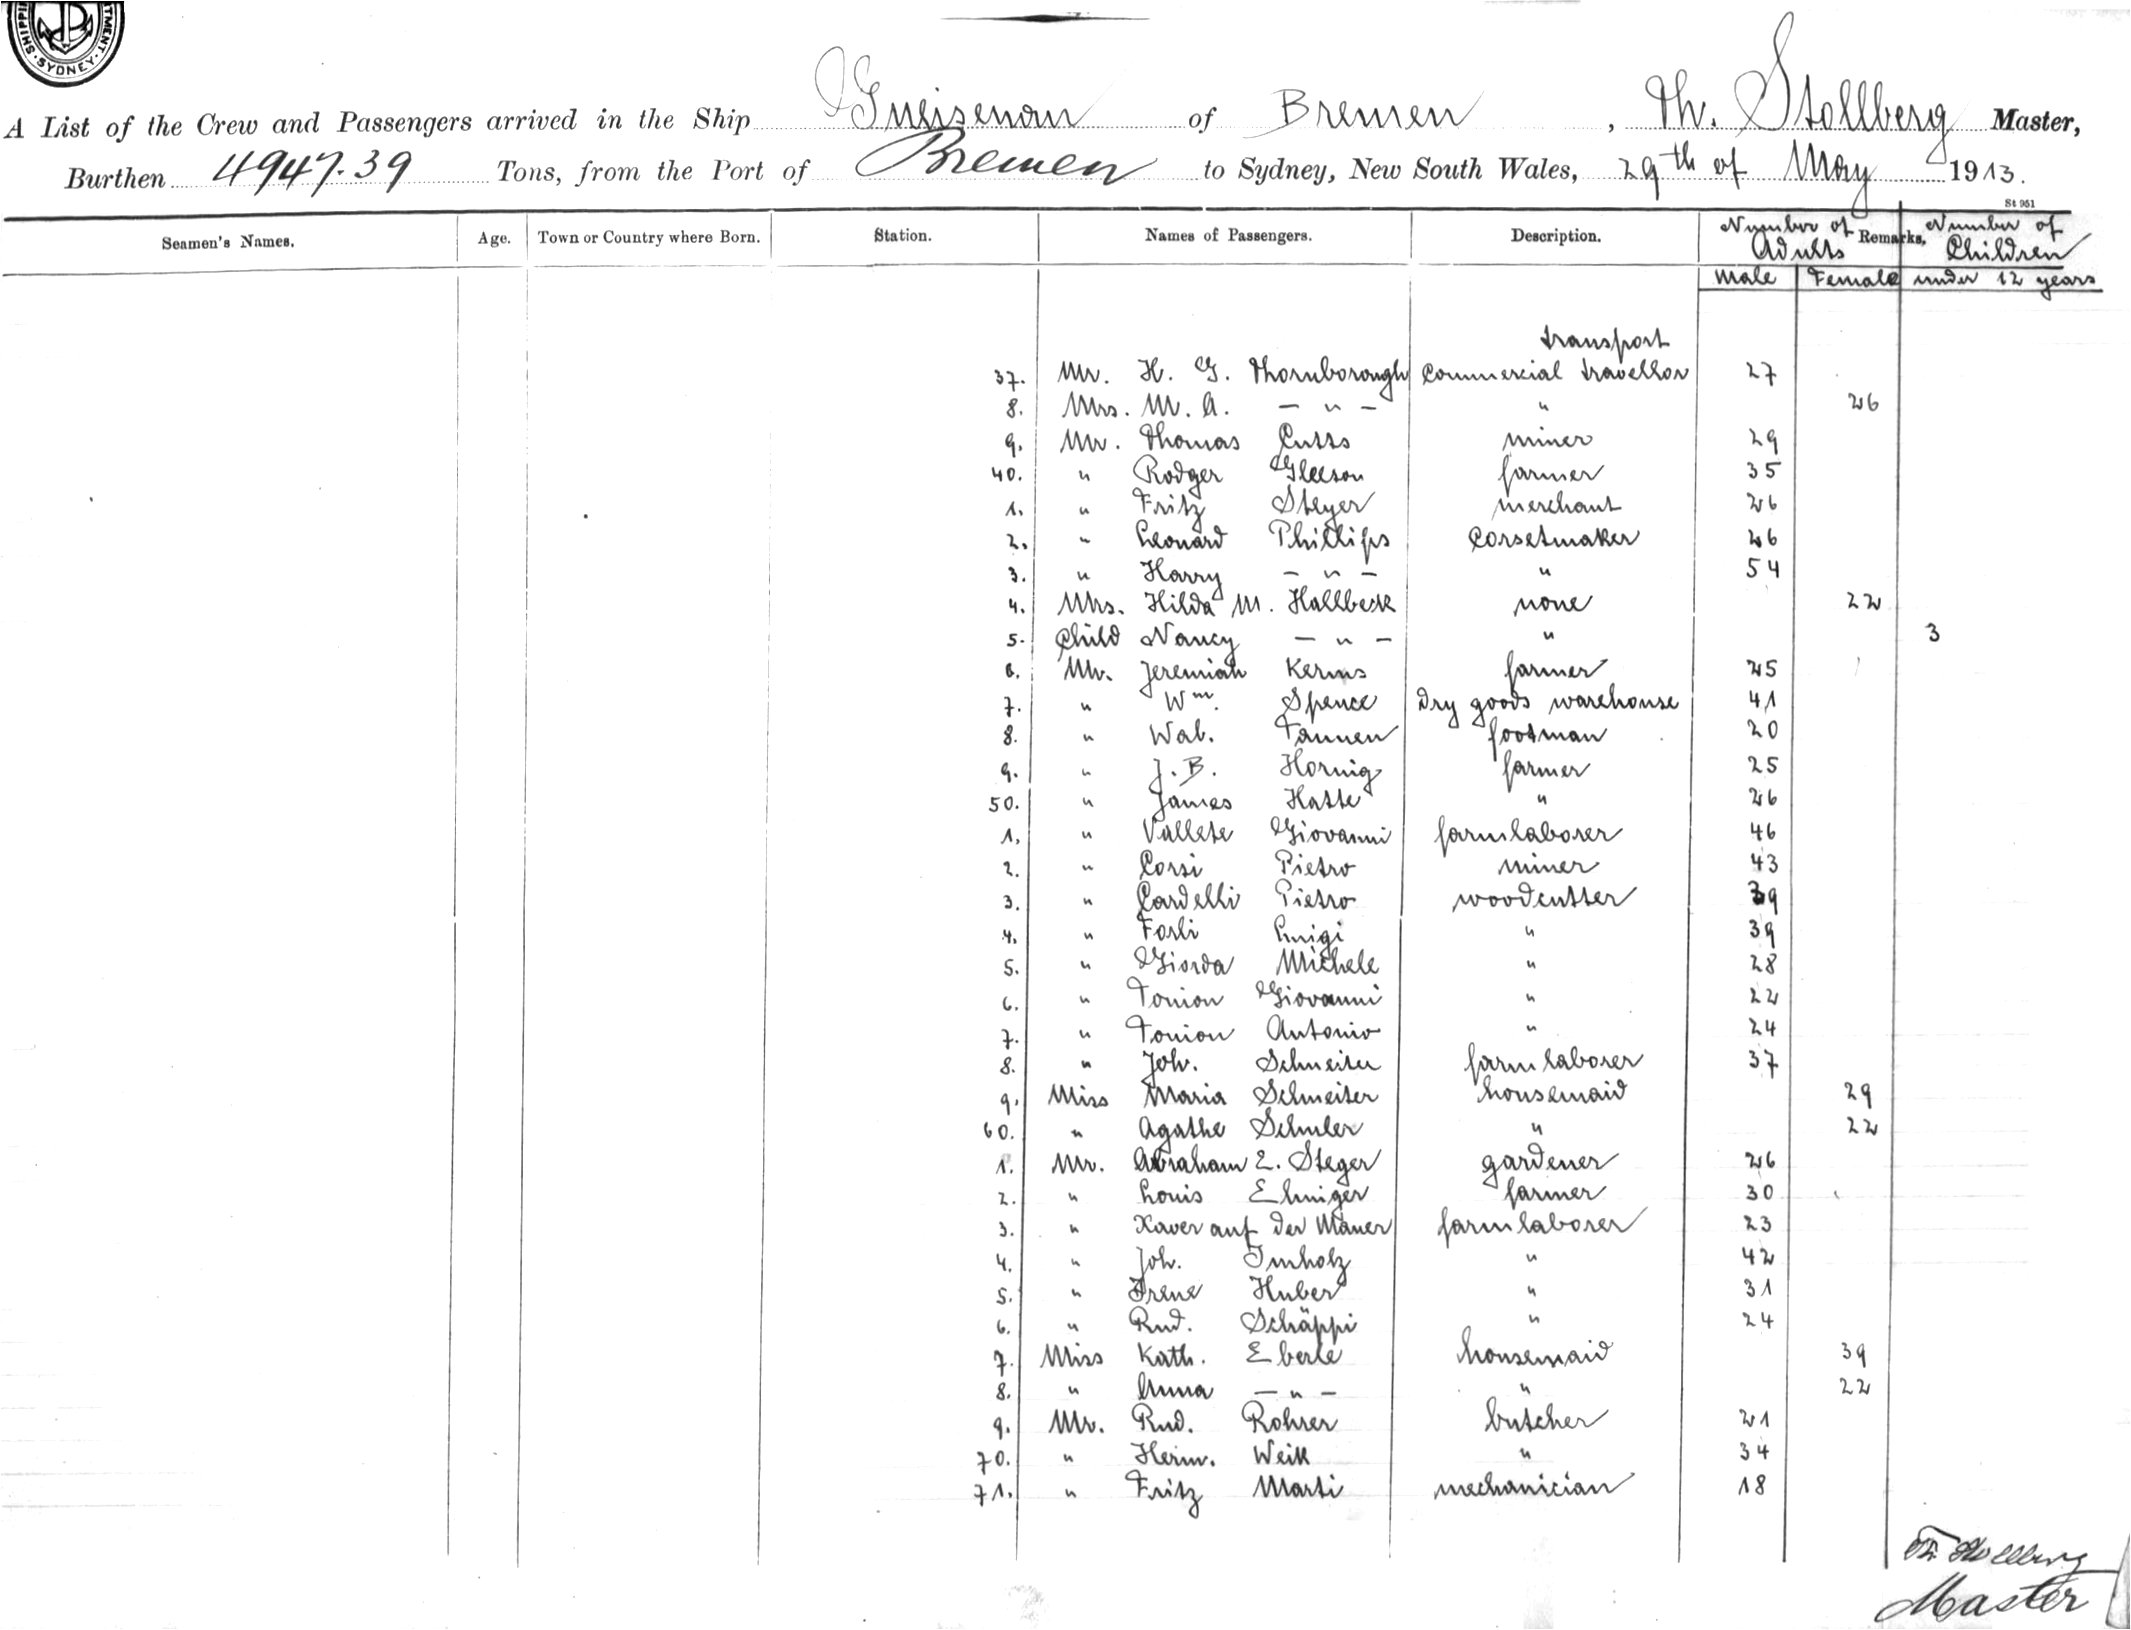 SHIPPI
TMENT
SYDNEY
A List of the Crew and Passengers arrived in the Ship Gneisenau of Bremen, Th. Stollberg Master,
Burthen 4947.39 Tons, from the Port of Bremen to Sydney, New South Wales, 29th of May 1913.
St 951
Seamen's Names. Age. Town or Country where Born. Station. Names of Passengers. Description. Number of Adults Remarks, Number of Children
Male Female under 12 years
transport
37. Mr. H. G. Thornborough commercial travellor 27
8. Mrs. M. A. — " — " 26
9. Mr. Thomas Cutts miner 29
40. " Rodger Gleeson farmer 35
1. " Fritz Steyer merchant 26
2. " Leonard Phillips corsetmaker 26
3. " Harry — " — " 54
4. Mrs. Hilda M. Hallbeck none 22
5. Child Nancy — " — " 3
6. Mr. Jeremiah Kerins farmer 25
7. " Wm. Spence Dry goods warehouse 41
8. " Wab. Tannen footman 20
9. " J. B. Hornig farmer 25
50. " James Hatte " 26
1. " Vallete Giovanni farmlaborer 46
2. " Corsi Pietro miner 43
3. " Cardelli Pietro woodcutter 39
4. " Forli Luigi " 39
5. " Giorda Michele " 28
6. " Tonion Giovanni " 22
7. " Tonion Antonio " 24
8. " Joh. Schmeiter farmlaborer 37
9. Miss Maria Schmeiter housemaid 29
60. " Agathe Schuler " 22
1. Mr. Abraham E. Steger gardener 26
2. " Louis Elmiger farmer 30
3. " Xaver auf der Mauer farmlaborer 23
4. " Joh. Imholz " 42
5. " Irene Huber " 31
6. " Rud. Schäppi " 24
7. Miss Kath. Eberle housemaid 39
8. " Anna — " — " 22
9. Mr. Rud. Rohrer butcher 21
70. " Herm. Weik " 34
71. " Fritz Marti mechanician 18
Th. Stollberg
Master